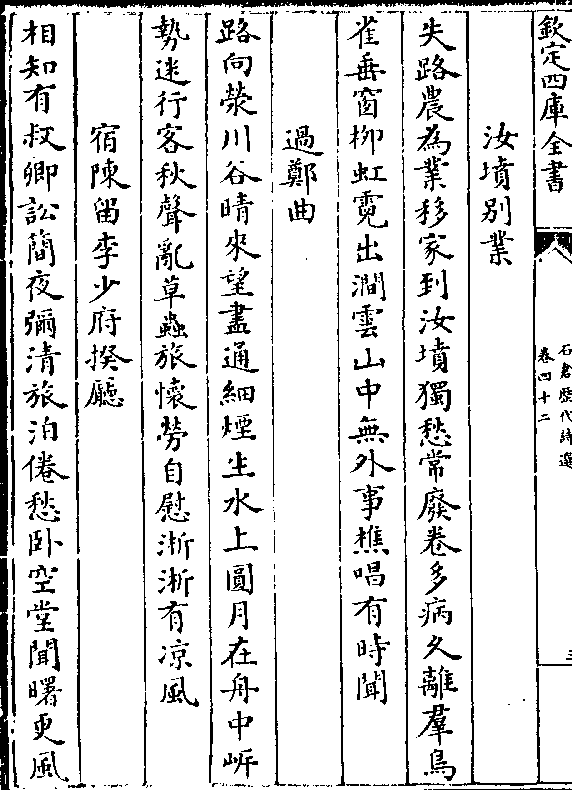 欽定四庫全書
石倉歴代詩選
卷四十二
三
汝墳别業
失路農為業移家到汝墳獨愁常廢卷多病久離羣鳥
雀垂窗栁虹霓出澗雲山中無外事樵唱有時聞
過鄭曲
路向滎川谷晴來望盡通細煙生水上圓月在舟中㟁
勢迷行客秋聲亂草蟲旅懷勞自慰淅淅有凉風
宿陳留李少府揆廳
相知有叔卿訟簡夜彌清旅泊倦愁卧空堂聞曙更風